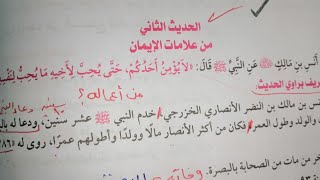 الحديث الثاني
من علامات الإيمان
أنس بن مالك ﷺ عن النبي ﷺ قال: «لا يؤمن أحدكم، حتى يحب لأخيه ما يحب لنفسه
من أعماله؟
ريف براوي الحديث:
بن مالك بن النضر الأنصاري الخزرجي خدم النبي ﷺ عشر سنين، ودعا له
والولد وطول العمر فكان من أكثر الأنصار مالًا وولدًا وأطولهم عمرًا، روى له
خر من مات من الصحابة بالبصرة.